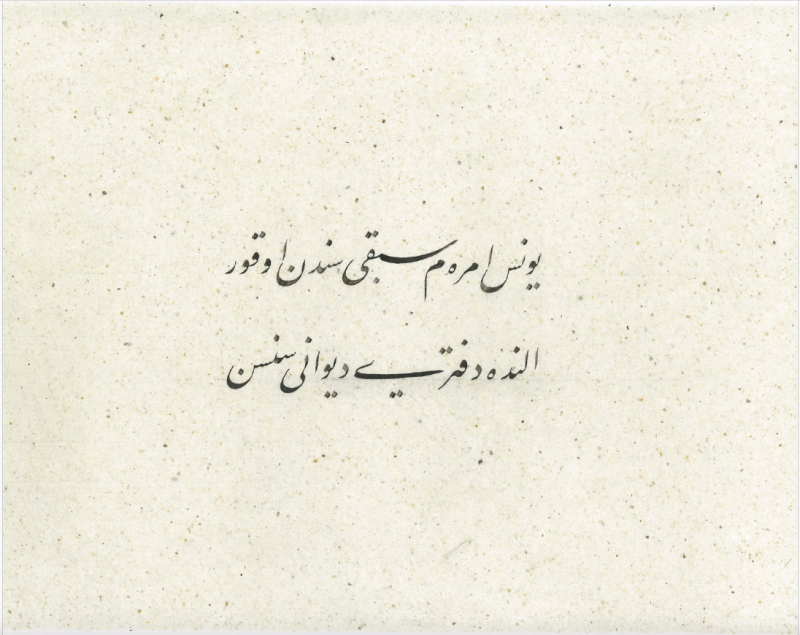 يونس امره م سبقى سندن اوقور
النده دفترى ديوانى سنسن